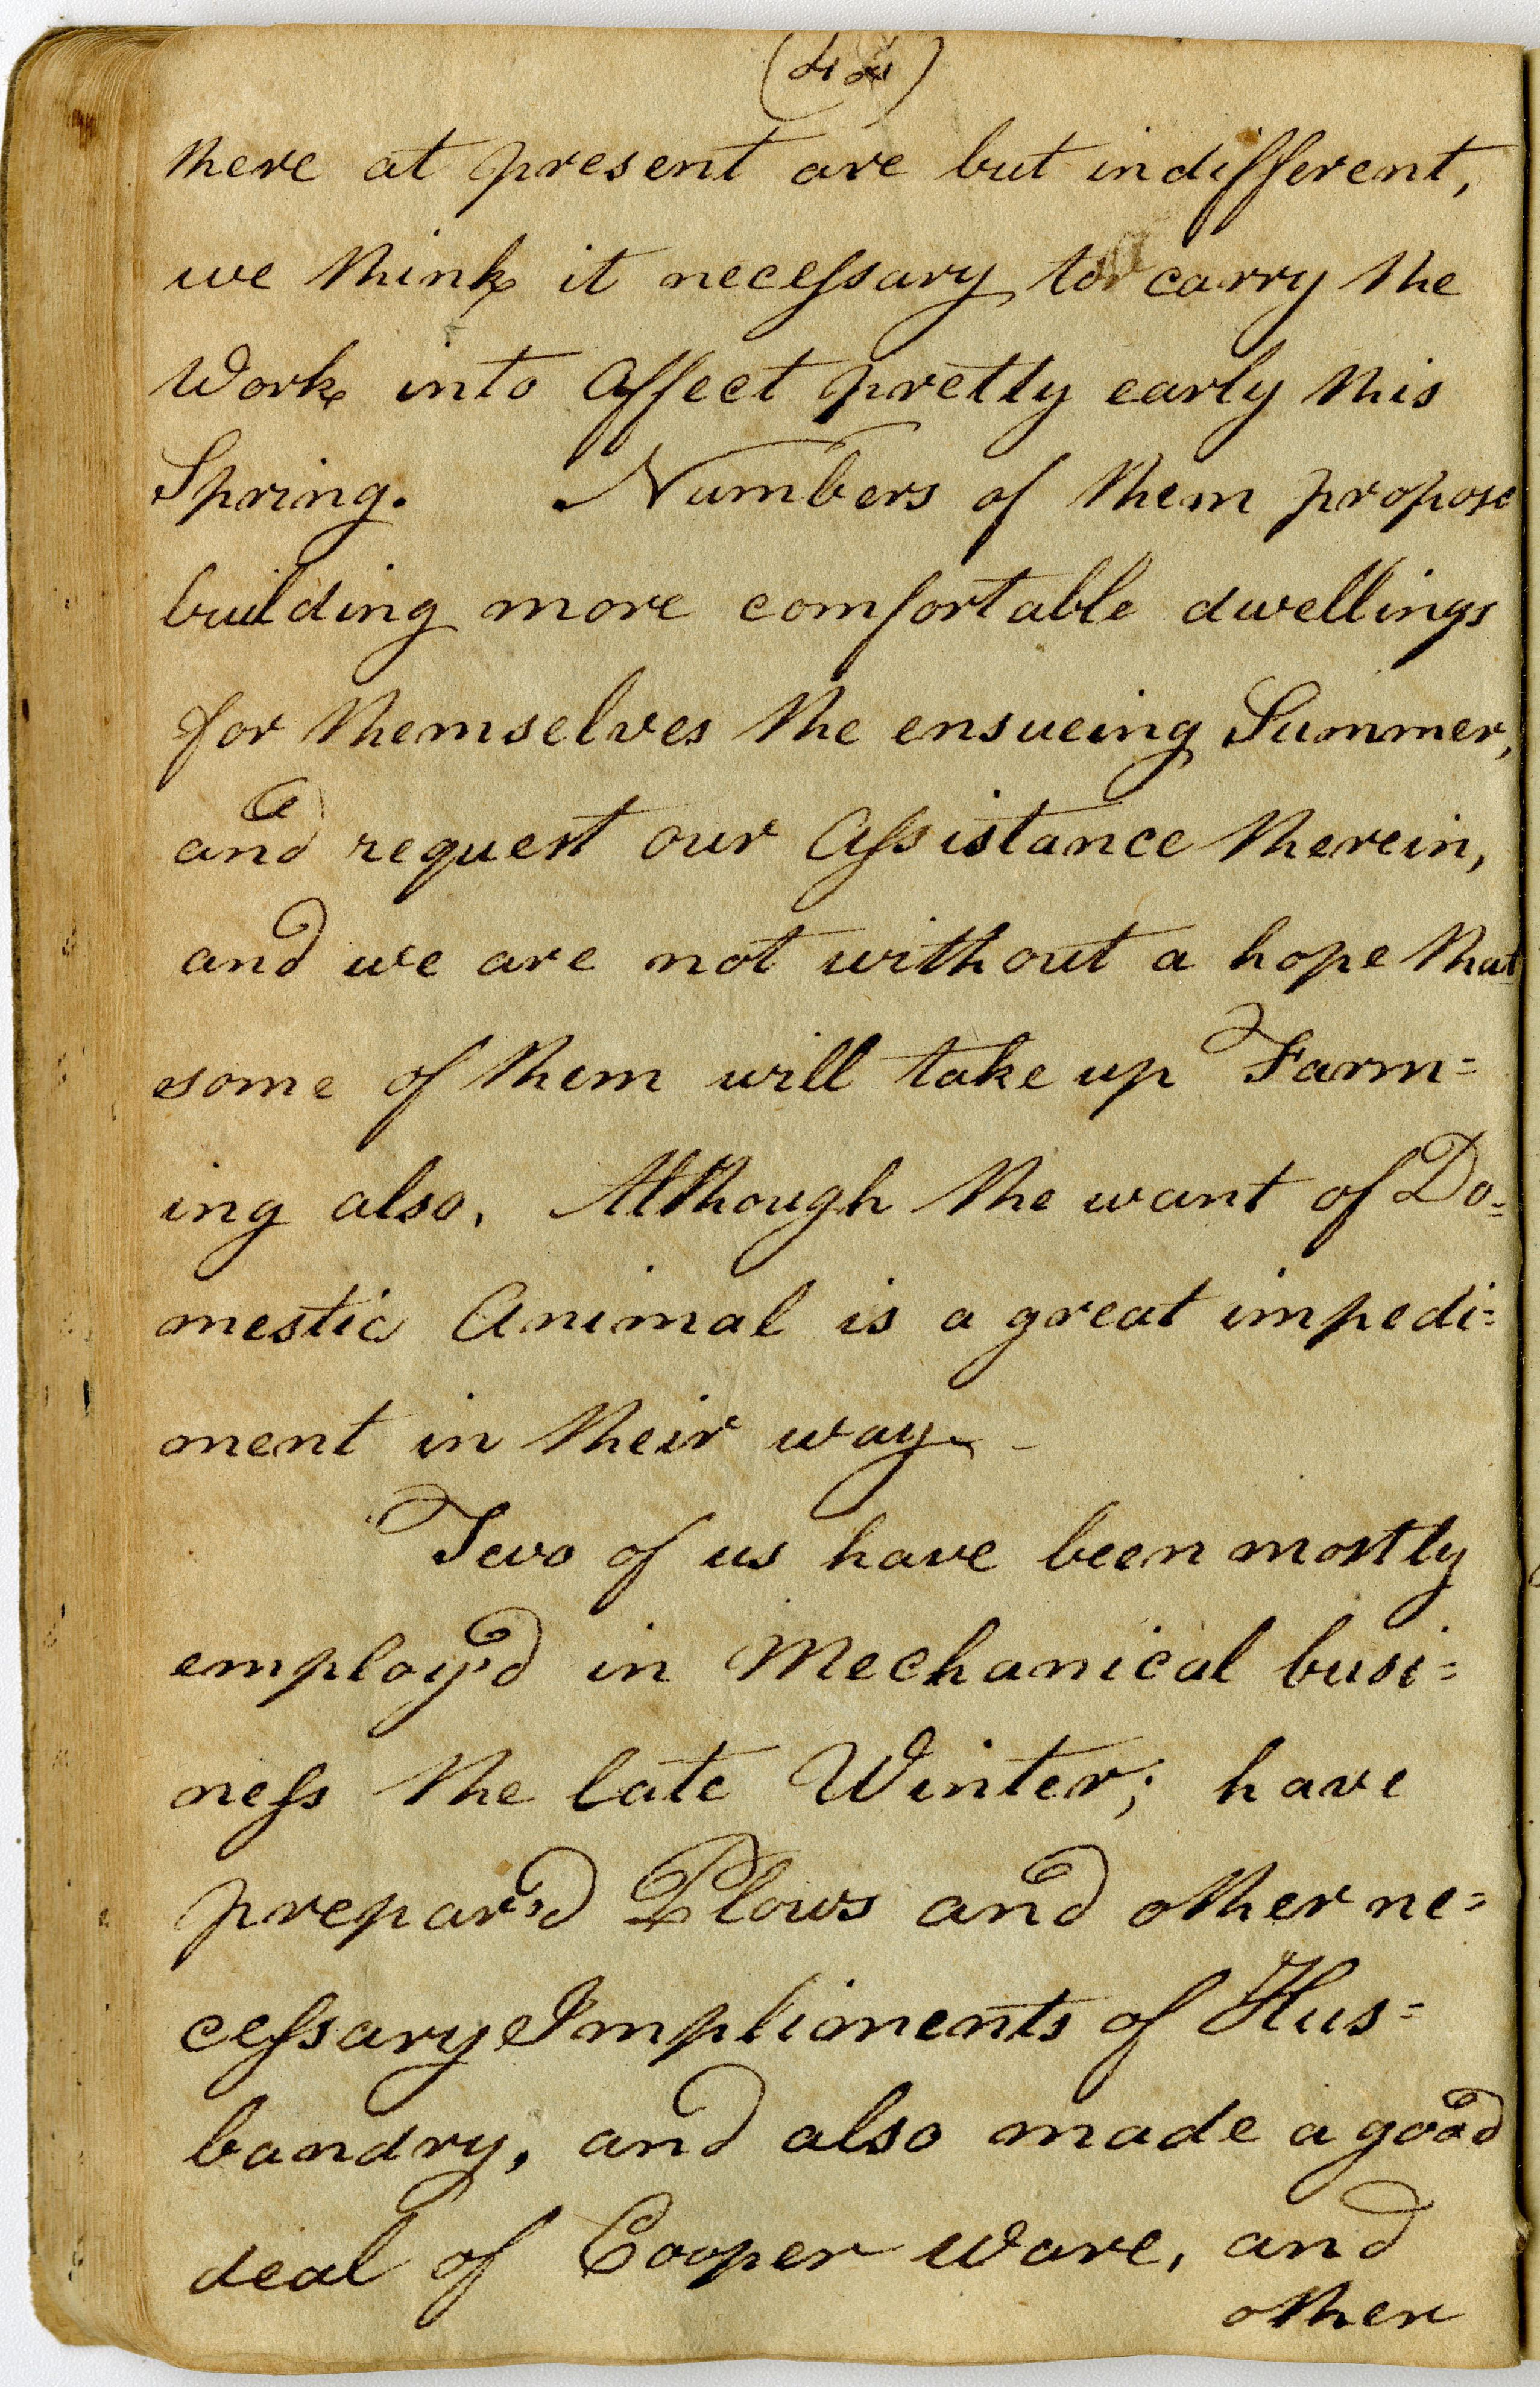 there at present are but indifferent,
we think it necessary to carry the
Work into Affect pretty early this
Spring. Numbers of them propose
building more comfortable dwellings
for themselves the ensueing Summer,
and request our Assistance therein,
and we are not without a hope that
some of them will take up Farm=
ing also. Although the want of Do=
mestic Animal is a great impedi=
ment in their way. -
Two of us have been mostly
employ'd in Mechanical busi=
ness the late Winter; have
prepar'd Plows and other ne=
cessary Impliments of Hus=
bandry, and also made a good
deal of Cooper ware, and
other